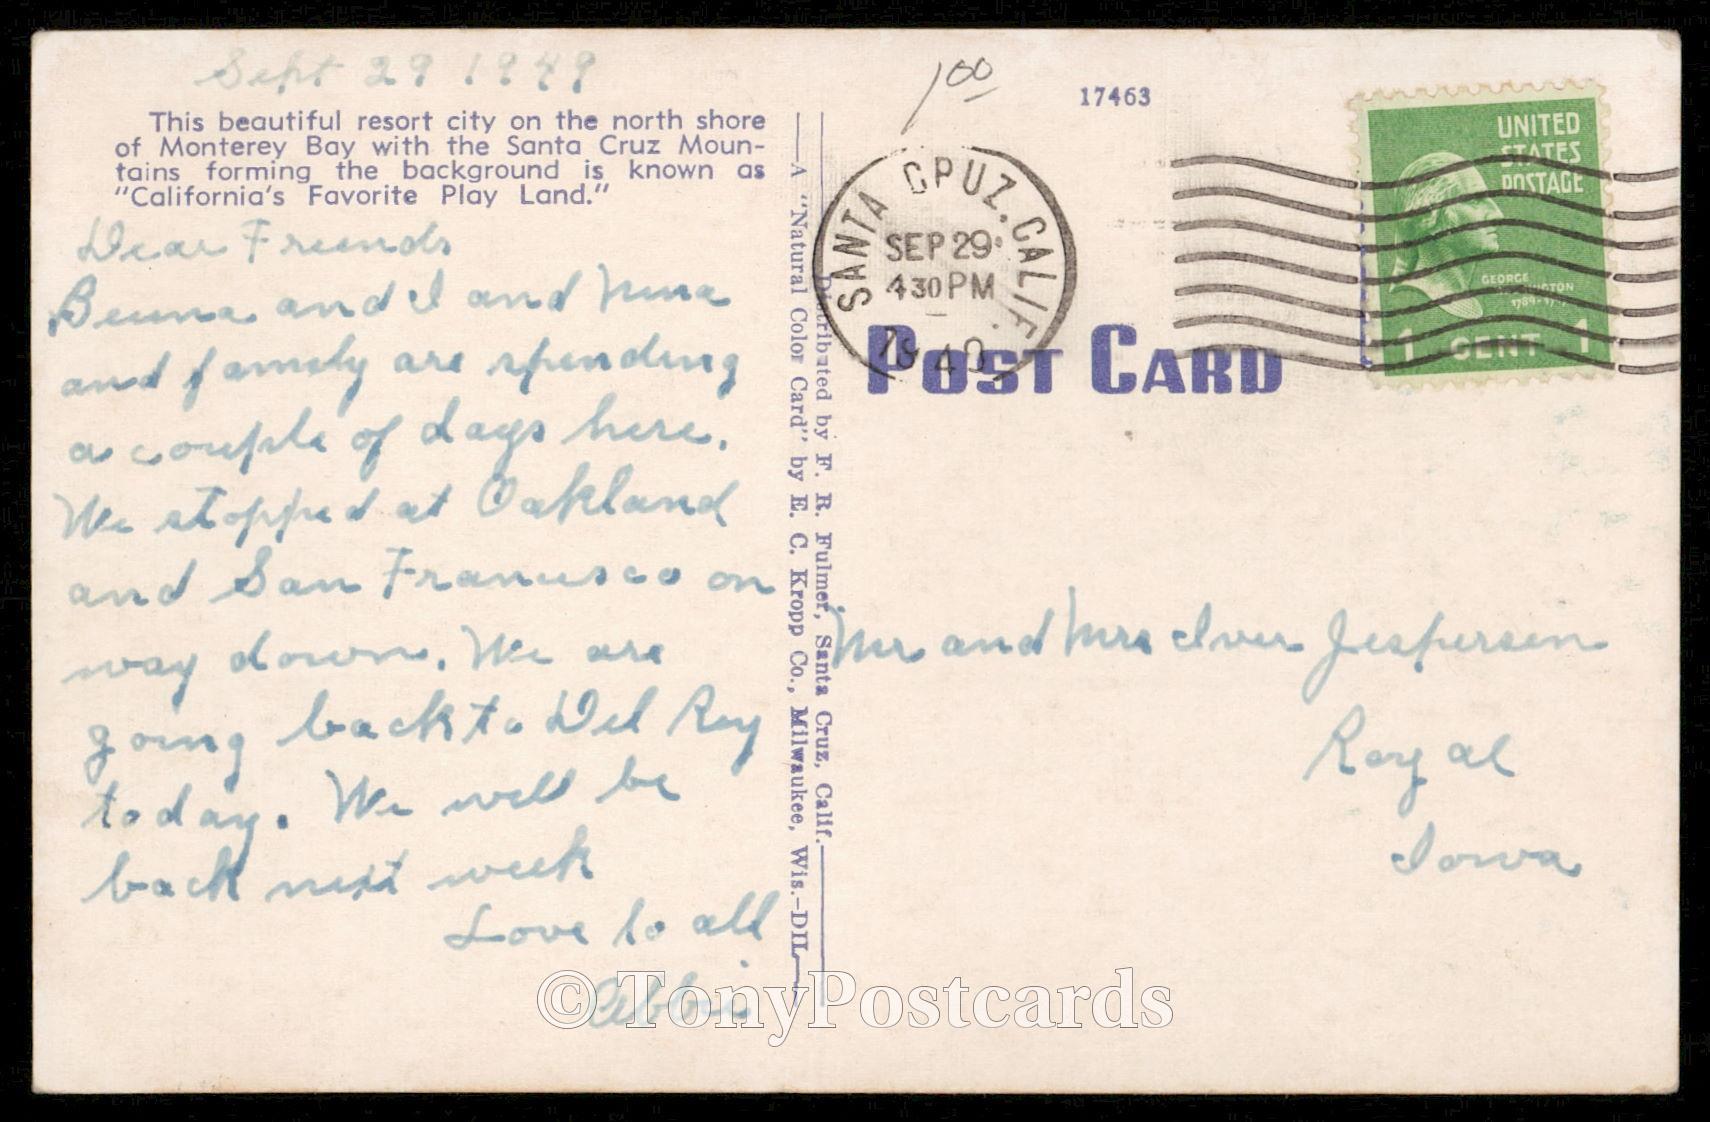 Sept 29 1949
This beautiful resort city on the north shore
of Monterey Bay with the Santa Cruz Moun-
tains forming the background is known as
"California's Favorite Play Land."
Dear Friends
and I and Nina
and family are spending
a couple of days here.
We stopped at Oakland
and San Francisco on
way down. We are
going back to Del Rey
today. We will be
back next week
Love to all
Abbie
A "Natural Color Card" by E. C. Kropp Co., Milwaukee, Wis.-DIL
Distributed by F. R. Fulmer, Santa Cruz, Calif.
1.00
17463
SANTA CRUZ, CALIF.
SEP 29
4 30 PM
UNITED
STATES
POSTAGE
GEORGE
WASHINGTON
1 CENT 1
POST CARD
Mr and Mrs Iver Jespersen
Royal
Iowa
© TonyPostcards